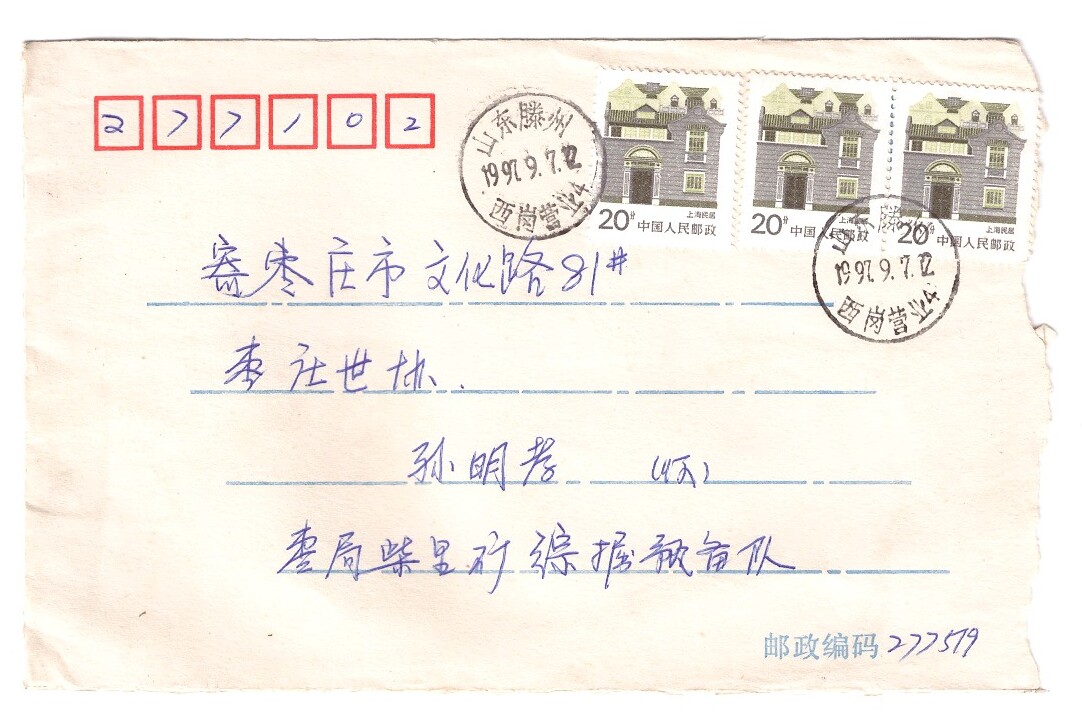 277102
山东滕州
1997.9.7.12
西岗营业4
20分
上海民居
中国人民邮政
20分
上海民居
中国人民邮政
20分
上海民居
中国人民邮政
山东滕州
1997.9.7.12
西岗营业4
寄枣庄市文化路81#
枣庄世协.
孙明孝 (收)
枣局柴里矿综掘预备队
邮政编码 277519